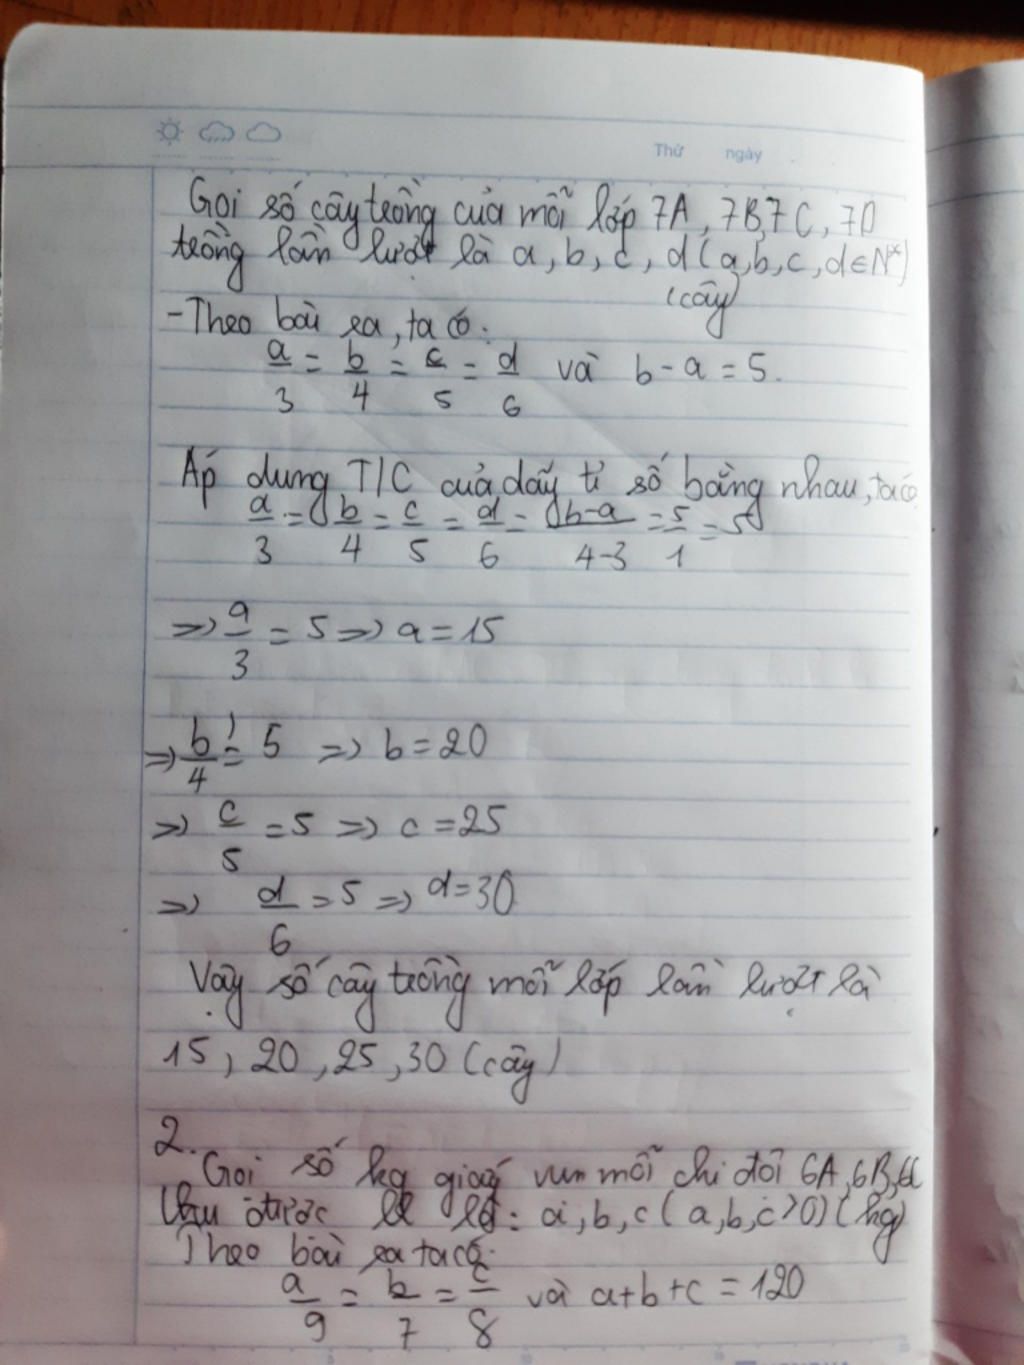 Thứ ngày
Gọi số cây trồng của mỗi lớp 7A, 7B, 7C, 7D
trồng lần lượt là a, b, c, d (a,b,c,d ∈ N*)
(cây)
- Theo bài ra, ta có:
a/3 = b/4 = c/5 = d/6 và b - a = 5.
Áp dụng T/C của dãy tỉ số bằng nhau, ta có
a/3 = b/4 = c/5 = d/6 = b-a/4-3 = 5/1 = 5
=> a/3 = 5 => a = 15
=> b/4 = 5 => b = 20
=> c/5 = 5 => c = 25
=> d/6 = 5 => d = 30
Vậy số cây trồng mỗi lớp lần lượt là
15, 20, 25, 30 (cây)
2.
Gọi số kg giấy vụn mỗi chi đội 6A, 6B, 6C
thu được là: a, b, c (a,b,c > 0) (kg)
Theo bài ra ta có:
a/9 = b/7 = c/8 và a+b+c = 120